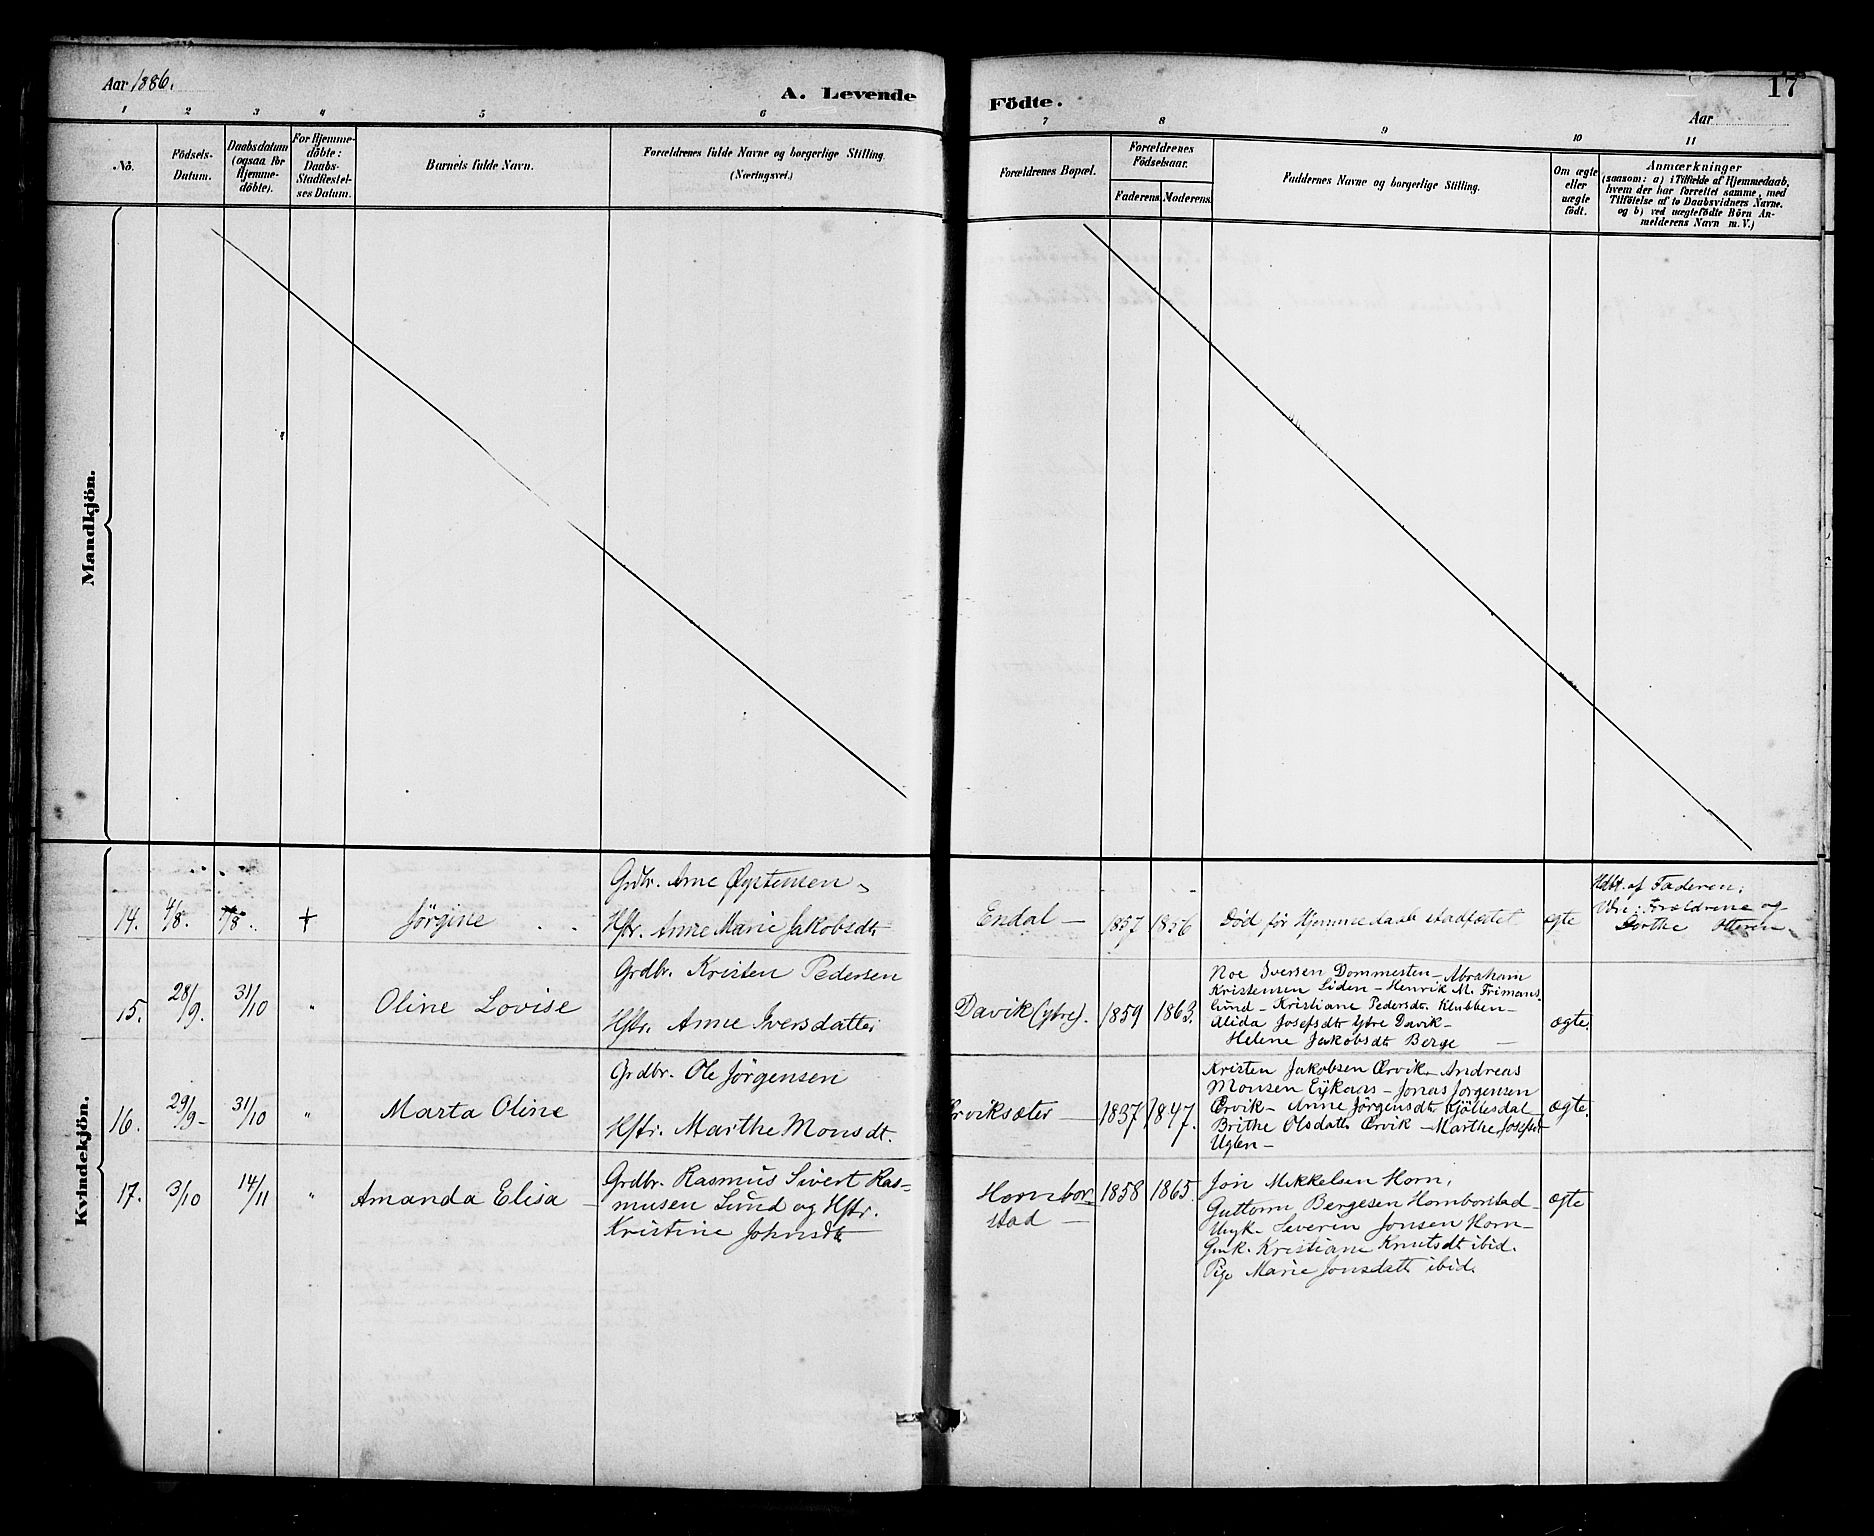 Aar 1886.
A. Levende
Födte.
17
Aar
1 2 3 4 5 6
7 8 9 10 11
No.
Födsels-
Datum.
Daabsdatum
(ogsaa for
Hjemme-
döbte).
For Hjemme-
döbte:
Daabs-
Stadfæstel-
ses Datum.
Barnets fulde Navn.
Forældrenes fulde Navne og borgerlige Stilling.
(Næringsvei.)
Forældrenes Bopæl.
Forældrenes
Födselsaar.
Faderens. Moderens.
Faddernes Navne og borgerlige Stilling.
Om ægte
eller
uægte
födt.
Anmærkninger
(saasom: a) i Tilfælde af Hjemmedaab,
hvem der har forrettet samme, med
Tilföielse af to Daabsvidners Navne.
og b) ved uægtefödte Börn An-
melderens Navn m. V.)
Mandkjön.
Kvindekjön.
14. 4/8. /8. +
Jörgine
Grdbr. Arne Øystensen
Hstr. Anne Marie Jakobsdtr
Endal —
1857 1856
Död för Hjemmedaab stadfæstet
egte
Hdbt. af Faderen;
Vdn: Forældrene og
Dorthe Otteren
15. 28/9. 31/10 "
Oline Lovise
Grdbr. Kristen Pedersen
Hstr. Anne Iversdatter
Davik (ytre).
1859 1863.
Noe Iversen Dommesten — Abraham
Kristensen Liden — Henrik M. Frimans
lund — Kristiane Pedersdtr. Klubben —
Alida Josefsdtr Ytre Davik —
Helene Jakobsdtr Berge —
ægte.
16. 29/9 — 31/10 "
Marta Oline
Grdbr. Ole Jörgensen
Hstr. Marthe Monsdt.
rviksæter —
1837 1847.
Kristen Jakobsen Ørvik — Andreas
Monsen Eikaas — Jonas Jörgensen
Ørvik — Anne Jörgensdtr. Kjöllesdal —
Brithe Olsdatt. Ørvik — Marthe Josefsd
Uglen —
ægte.
17. 3/10 14/11 "
Amanda Elisa —
Grdbr. Rasmus Sivert Ras=
musen Lund og Hstr.
Kristine Johnsdtr
Hornbor=
stad —
1858 1865.
Jon Mikkelsen Horn,
Guttorm Bergesen Hornborstad —
Ungk. Severin Jonsen Horn —
Gmk. Kristiane Knutsdt ibid.
Pige Marie Jonsdatt ibid.
ægte